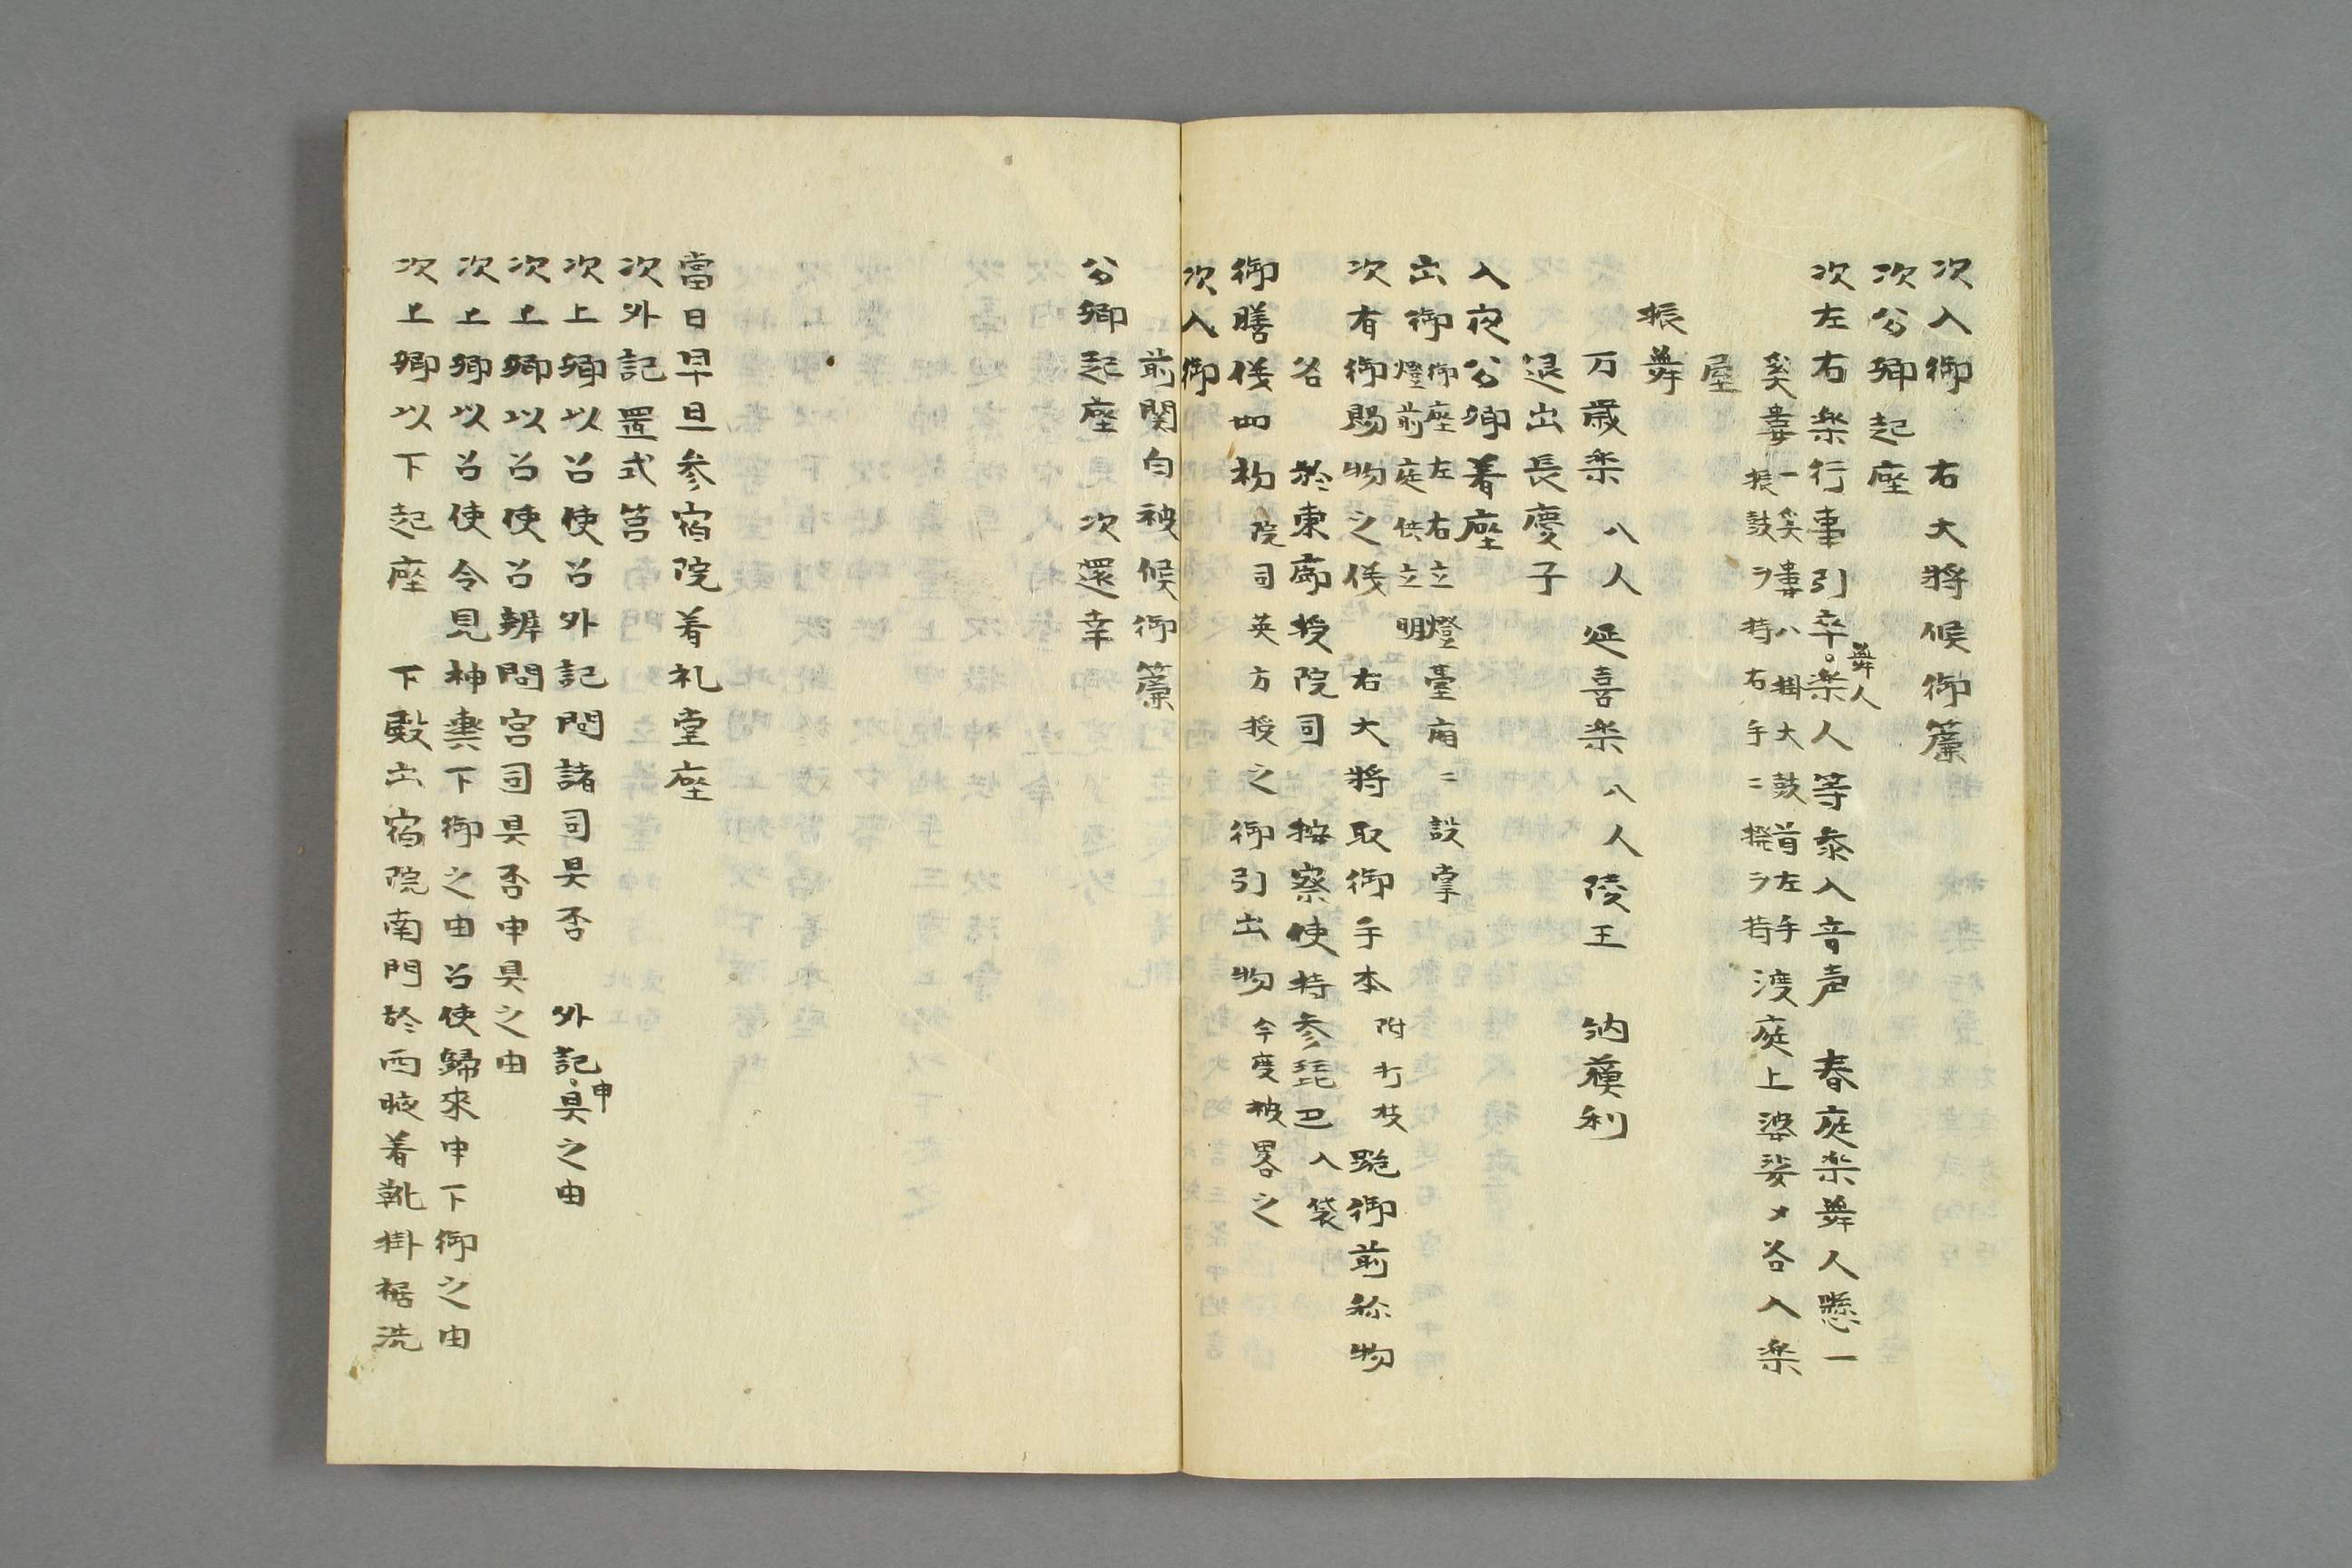 次入御　右大将候御簾
次公卿起座
次左右楽行事引卒。楽人等参入音声　春庭楽舞人懸一
舞人
奚婁
一奚婁ハ掛大鼓首左手
振鼓ヲ持右手ニ撥ヲ持
渡庭上婆娑〆各入楽
屋
振舞
万歳楽　八人　延喜楽　八人　陵王　納蘓利
退出長慶子
入夜公卿着座
出御
御座左右立燈臺庿ニ設掌
燈前庭供立明
次有御賜物之儀　右大将取御手本
附打枝
跪御前称物
名　於東廊授院司　按察使持参琵巴
入袋
御膳儀如初
院司英方授之
御引出物
今度被畧之
次入御
前関白被候御簾
公卿起座　次還幸
當日早旦参宿院着礼堂座
次外記置式筥
次上卿以召使召外記問諸司具否　外記。具之由
申
次上卿以召使召辨問宮司具否申具之由
次上卿以召使令見神輿下御之由召使歸來申下御之由
次上卿以下起座　下殿出宿院南門於西腋着靴掛裾洗